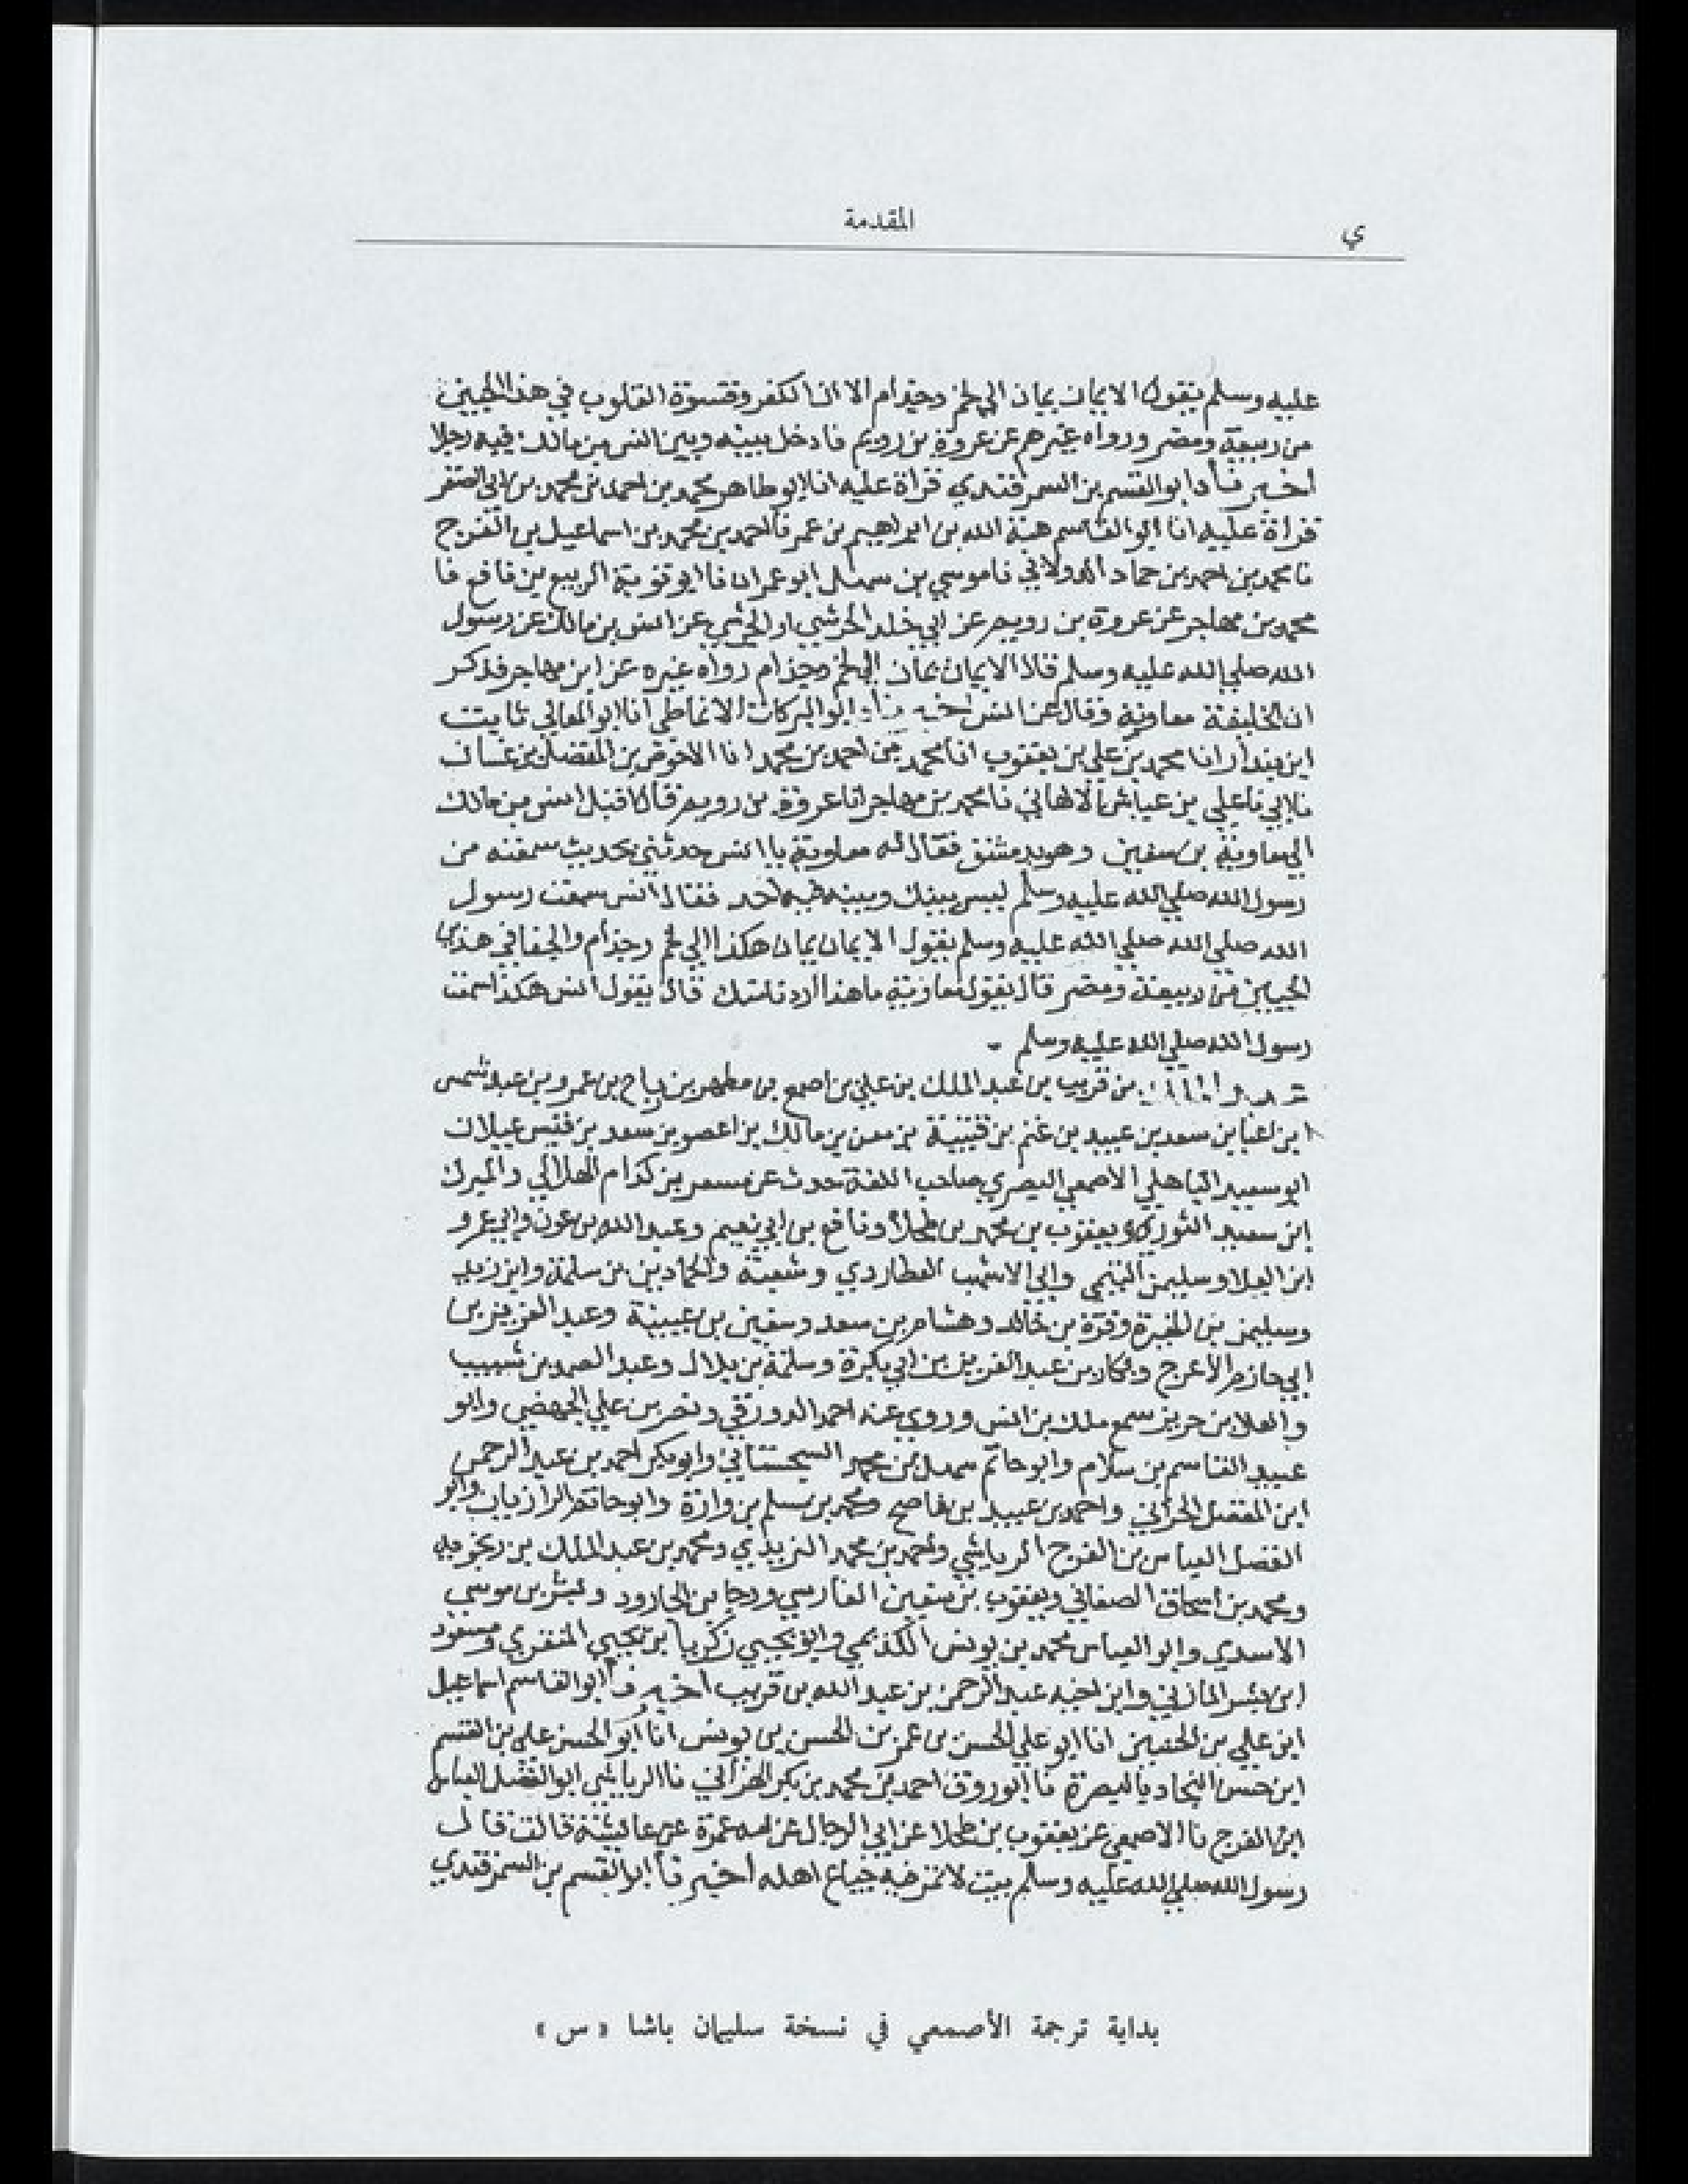 ي
المقدمة
عليه وسلم يقول الايمان يمان الى لخم وجذام الا ان الكفر وقسوة القلوب في هذا الحيين
من ربيعة ومضر ورواه غيرهم عن عروة بن رويم فادخل بينه وبين انس بن مالك فيه رجلا
ابو القسم بن السمرقندي قراة عليه انا ابو طاهر محمد بن احمد بن محمد بن ابي الصقر
قراة عليه انا ابو القاسم هبة الله بن ابراهيم بن عمر نا احمد بن محمد بن اسماعيل بن الفرج
نا محمد بن احمد بن حماد الدولابي نا موسي بن سهل ابو عمران نا ابو توبة الربيع بن نافع نا
محمد بن مهاجر عن عروة بن رويم عن ابي خلد الحرشي او الجرشي عن انس بن مالك عن رسول
الله صلي الله عليه وسلم قال الايمان يمان الى لخم وجذام رواه غيره عن ابن مهاجر فذكر
ان الخليفة معاوية وقال عن انس ابو البركات الانماطي انا ابو المعالي ثابت
ابن بندار انا محمد بن علي بن يعقوب انا محمد بن احمد بن محمد انا الاحوص بن المفضل بن غسان
نا ابي نا علي بن عياش الالهاني نا محمد بن مهاجر انا عروة بن رويم قال اقبل انس بن مالك
الى معاوية بن سفين وهو بدمشق فقال له معاوية يا انس حدثني بحديث سمعته من
رسول الله صلي الله عليه وسلم ليس بينك وبينه فيه احد فقال انس سمعت رسول
الله صلي الله صلي الله عليه وسلم يقول الايمان يمان هكذا الي لخم وجذام والجفا في هذين
الحيين من ربيعة ومضر قال يقول معاوية ما هذا اردنا منك قال يقول انس هكذا سمعت
رسول الله صلي الله عليه وسلم
بن قريب بن عبد الملك بن علي بن اصمع بن مطهر بن رباح بن عمرو بن عبد شمس
ابن اعيا بن سعد بن عبيد بن غنم بن قتيبة بن معن بن مالك بن اعصر بن سعد بن قيس عيلان
ابو سعيد الباهلي الاصمعي البصري صاحب اللغة حدث عن مسعر بن كدام الهلالي
ابن سعيد الثوري ويعقوب بن محمد بن طحلا ونافع بن ابي نعيم وعبد الله بن عون وابي عمرو
ابن العلا وسليمن التيمي وابي الاشهب العطاردي وشعبة والحمادين بن سلمة وابن زيد
وسليمن بن المغيرة وقرة بن خالد وهشام بن سعد وسفين بن عيينة وعبد العزيز بن
ابي حازم الاعرج وبكار بن عبد العزيز بن ابي بكرة وسلمة بن بلال وعبد الصمد بن شبيب
والعلا بن حريز سمع ملك بن انس وروي عنه احمد الدورقي ونصر بن علي الجهضمي وابو
عبيد القاسم بن سلام وابو حاتم سهل بن محمد السجستاني وابو بكر احمد بن عبد الرحمن
ابن المفضل الحراني واحمد بن عبيد بن ناصح ومحمد بن مسلم بن وارة وابو حاتم الرازيان وابو
الفضل العباس بن الفرج الرياشي واحمد بن محمد اليزيدي ومحمد بن عبد الملك بن زنجويه
ومحمد بن اسحاق الصغاني ويعقوب بن سفين الفارسي ورجا بن الجارود وبشر بن موسي
الاسدي وابو العباس محمد بن يونس الكديمي وابو يحيي زكريا بن يحيي المنقري ومسعود
ابن بشر المازني وابن اخيه عبد الرحمن بن عبد الله بن قريب ابو القاسم اسماعيل
ابن علي بن الحسين انا ابو علي الحسن بن عمر بن الحسن بن يونس انا ابو الحسن علي بن القسم
ابن حسن النجاد بالبصرة نا ابو روق احمد بن محمد بن بكر الهزاني نا الرياشي ابو الفضل العباس
ابن الفرج نا الاصمعي عن يعقوب بن طحلا عن ابي الرجال عن امه عمرة عن عائشة قالت قال
رسول الله صلي الله عليه وسلم بيت لا تمر فيه جياع اهله ابو القسم بن السمرقندي
بداية ترجمة الأصمعي في نسخة سليمان باشا « س »